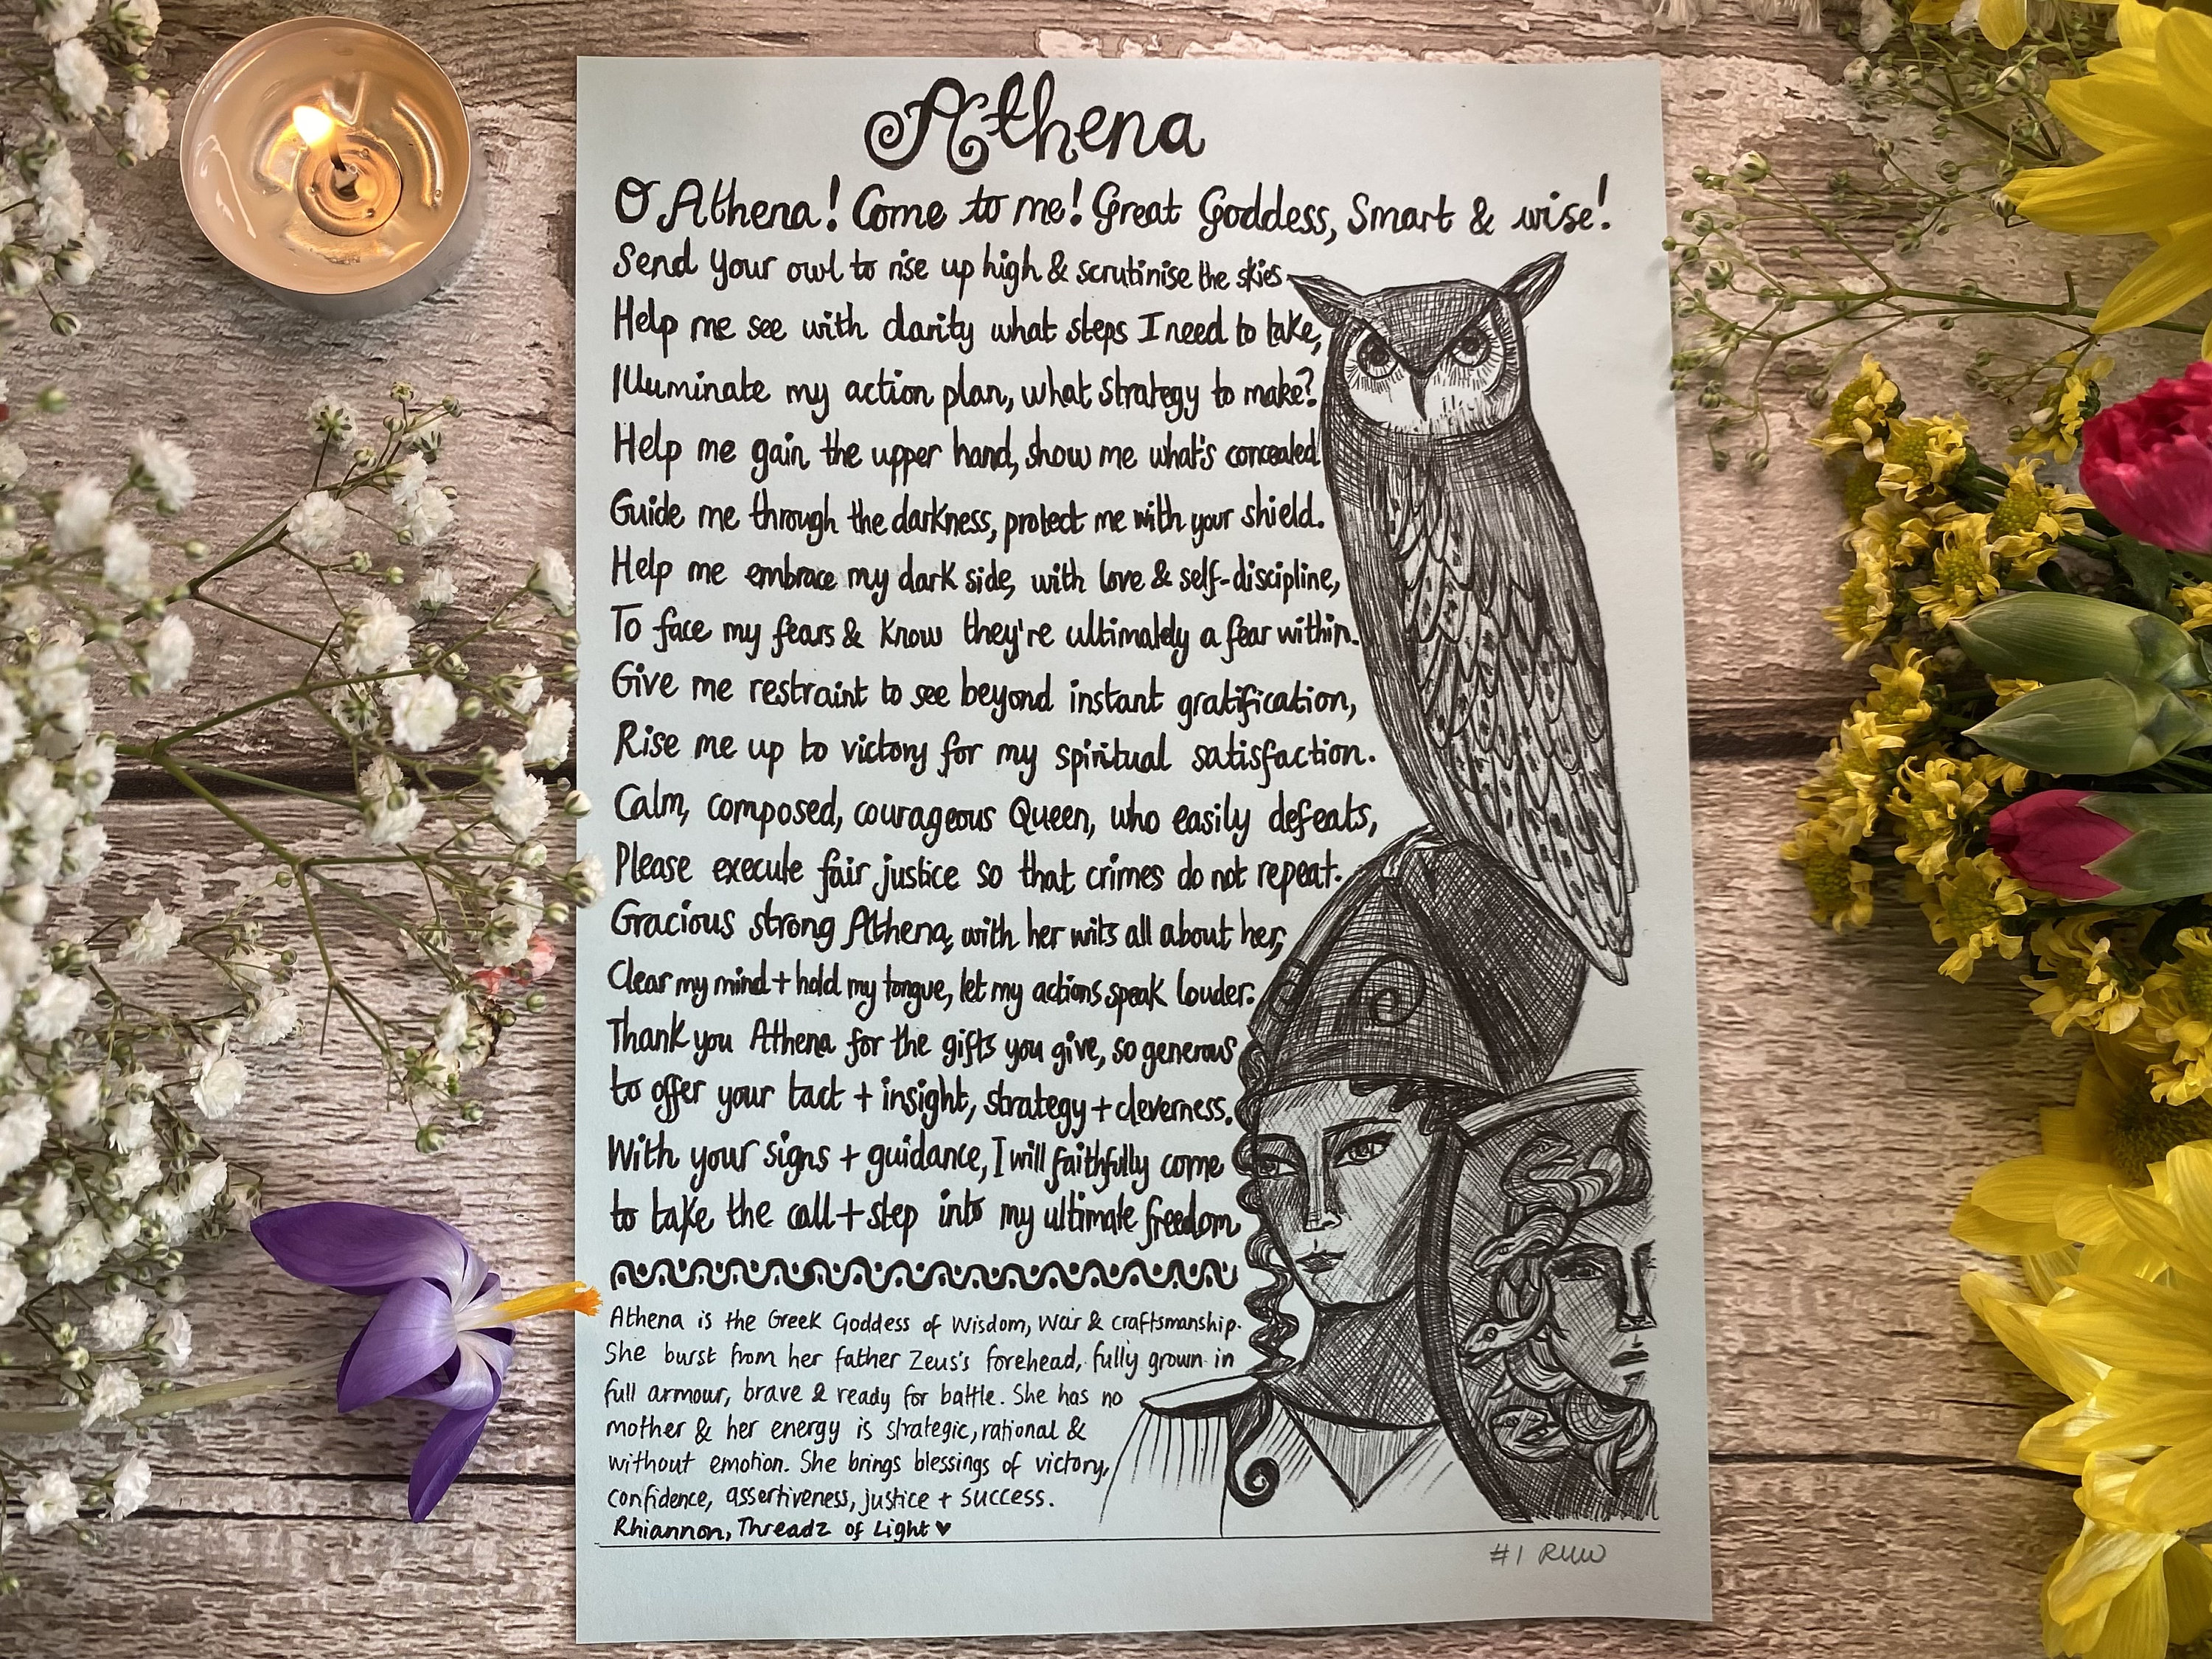 Athena
O Athena! Come to me! Great Goddess, Smart & wise!
Send your owl to rise up high & scrutinise the skies.
Help me see with clarity what steps I need to take,
Illuminate my action plan, what strategy to make?
Help me gain the upper hand, show me what's concealed.
Guide me through the darkness, protect me with your shield.
Help me embrace my dark side, with love & self-discipline,
To face my fears & Know they're ultimately a fear within.
Give me restraint to see beyond instant gratification,
Rise me up to victory for my spiritual satisfaction.
Calm, composed, courageous Queen, who easily defeats,
Please execute fair justice so that crimes do not repeat.
Gracious strong Athena, with her wits all about her,
Clear my mind + hold my tongue, let my actions speak louder.
Thank you Athena for the gifts you give, so generous
to offer your tact + insight, strategy + cleverness.
With your signs + guidance, I will faithfully come
to take the call + step into my ultimate freedom
Athena is the Greek Goddess of Wisdom, War & craftsmanship.
She burst from her father Zeus's forehead, fully grown in
full armour, brave & ready for battle. She has no
mother & her energy is strategic, rational &
without emotion. She brings blessings of victory,
confidence, assertiveness, justice + success.
Rhiannon, Threadz of Light ♥
#1